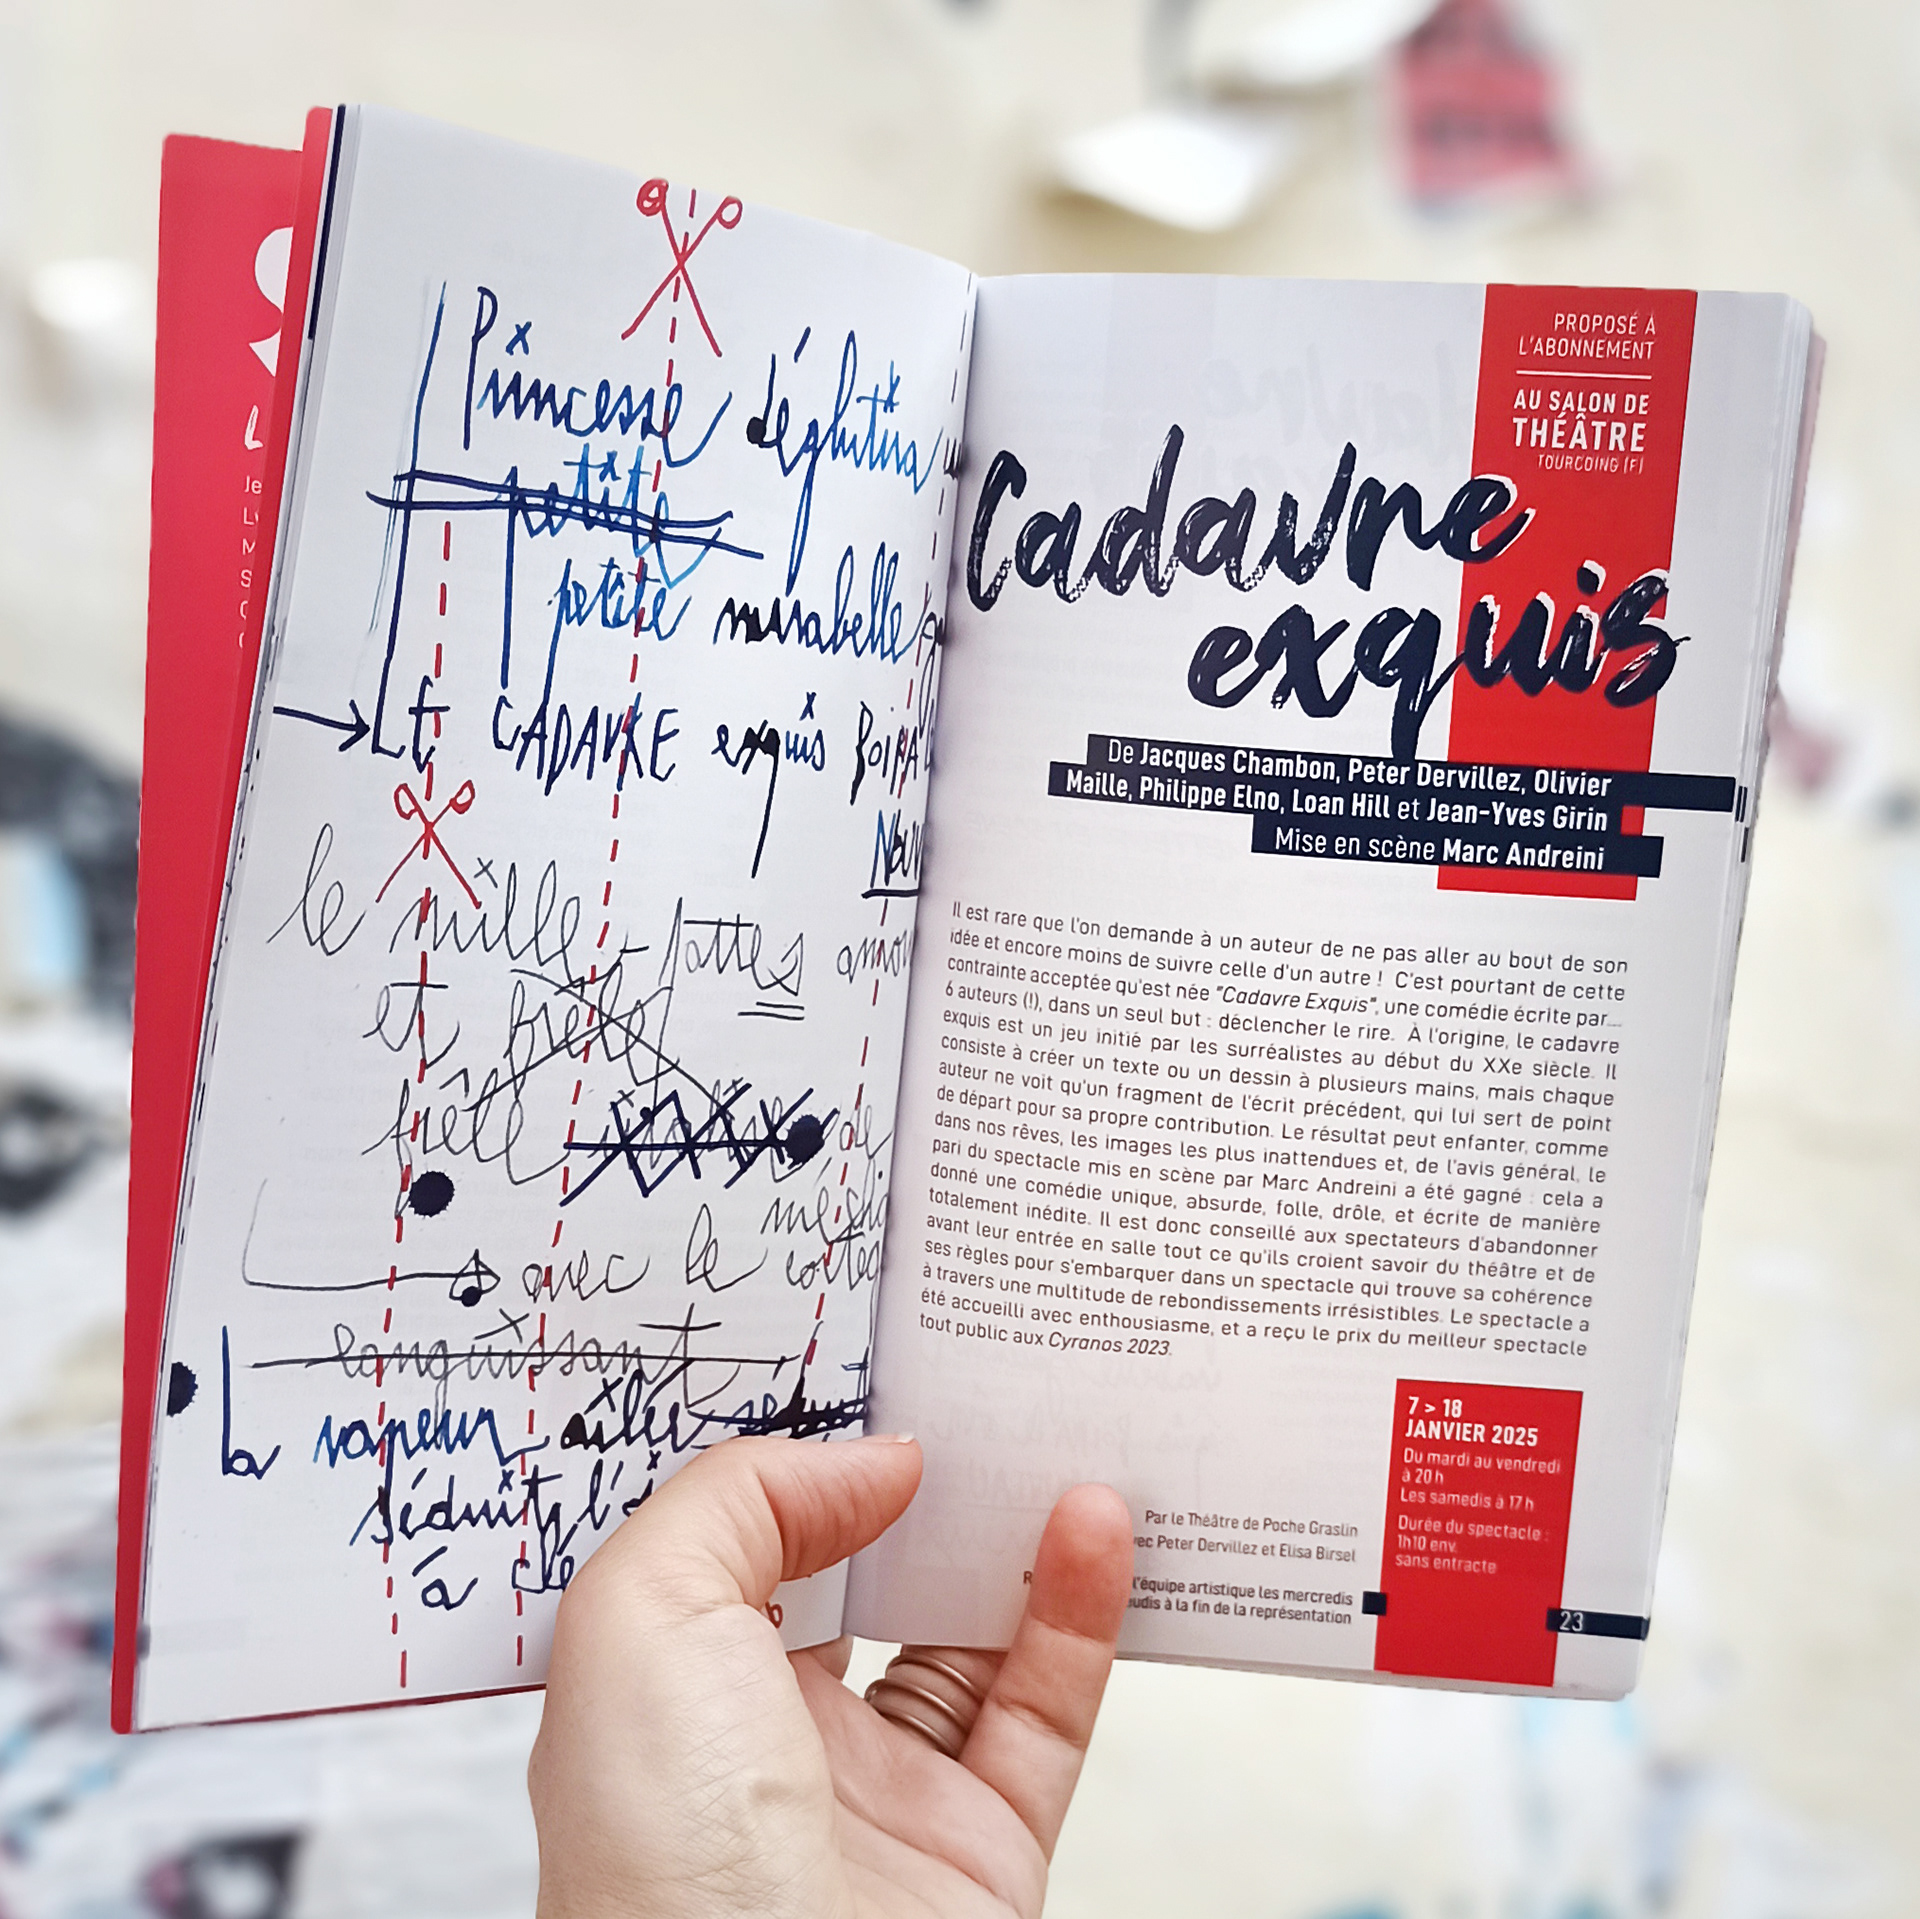 Je
Princesse déglutira
petite
petite mirabelle
Et CADAVRE exquis BOIRA
le mille-pattes
et frêle
frêle de
avec le
languissant
la vapeur ailée
séduit l'
à clé
PROPOSÉ À
L'ABONNEMENT
AU SALON DE
THÉÂTRE
TOURCOING (F)
Cadavre
exquis
De Jacques Chambon, Peter Dervillez, Olivier
Maille, Philippe Elno, Loan Hill et Jean-Yves Girin
Mise en scène Marc Andreini
Il est rare que l'on demande à un auteur de ne pas aller au bout de son
idée et encore moins de suivre celle d'un autre ! C'est pourtant de cette
contrainte acceptée qu'est née "Cadavre Exquis", une comédie écrite par...
6 auteurs (!), dans un seul but : déclencher le rire. À l'origine, le cadavre
exquis est un jeu initié par les surréalistes au début du XXe siècle. Il
consiste à créer un texte ou un dessin à plusieurs mains, mais chaque
auteur ne voit qu'un fragment de l'écrit précédent, qui lui sert de point
de départ pour sa propre contribution. Le résultat peut enfanter, comme
dans nos rêves, les images les plus inattendues et, de l'avis général, le
pari du spectacle mis en scène par Marc Andreini a été gagné : cela a
donné une comédie unique, absurde, folle, drôle, et écrite de manière
totalement inédite. Il est donc conseillé aux spectateurs d'abandonner
avant leur entrée en salle tout ce qu'ils croient savoir du théâtre et de
ses règles pour s'embarquer dans un spectacle qui trouve sa cohérence
à travers une multitude de rebondissements irrésistibles. Le spectacle a
été accueilli avec enthousiasme, et a reçu le prix du meilleur spectacle
tout public aux Cyranos 2023.
7 > 18
JANVIER 2025
Du mardi au vendredi
à 20 h
Les samedis à 17 h
Durée du spectacle :
1h10 env.
sans entracte
Par le Théâtre de Poche Graslin
Peter Dervillez et Elisa Birsel
l'équipe artistique les mercredis
à la fin de la représentation
23